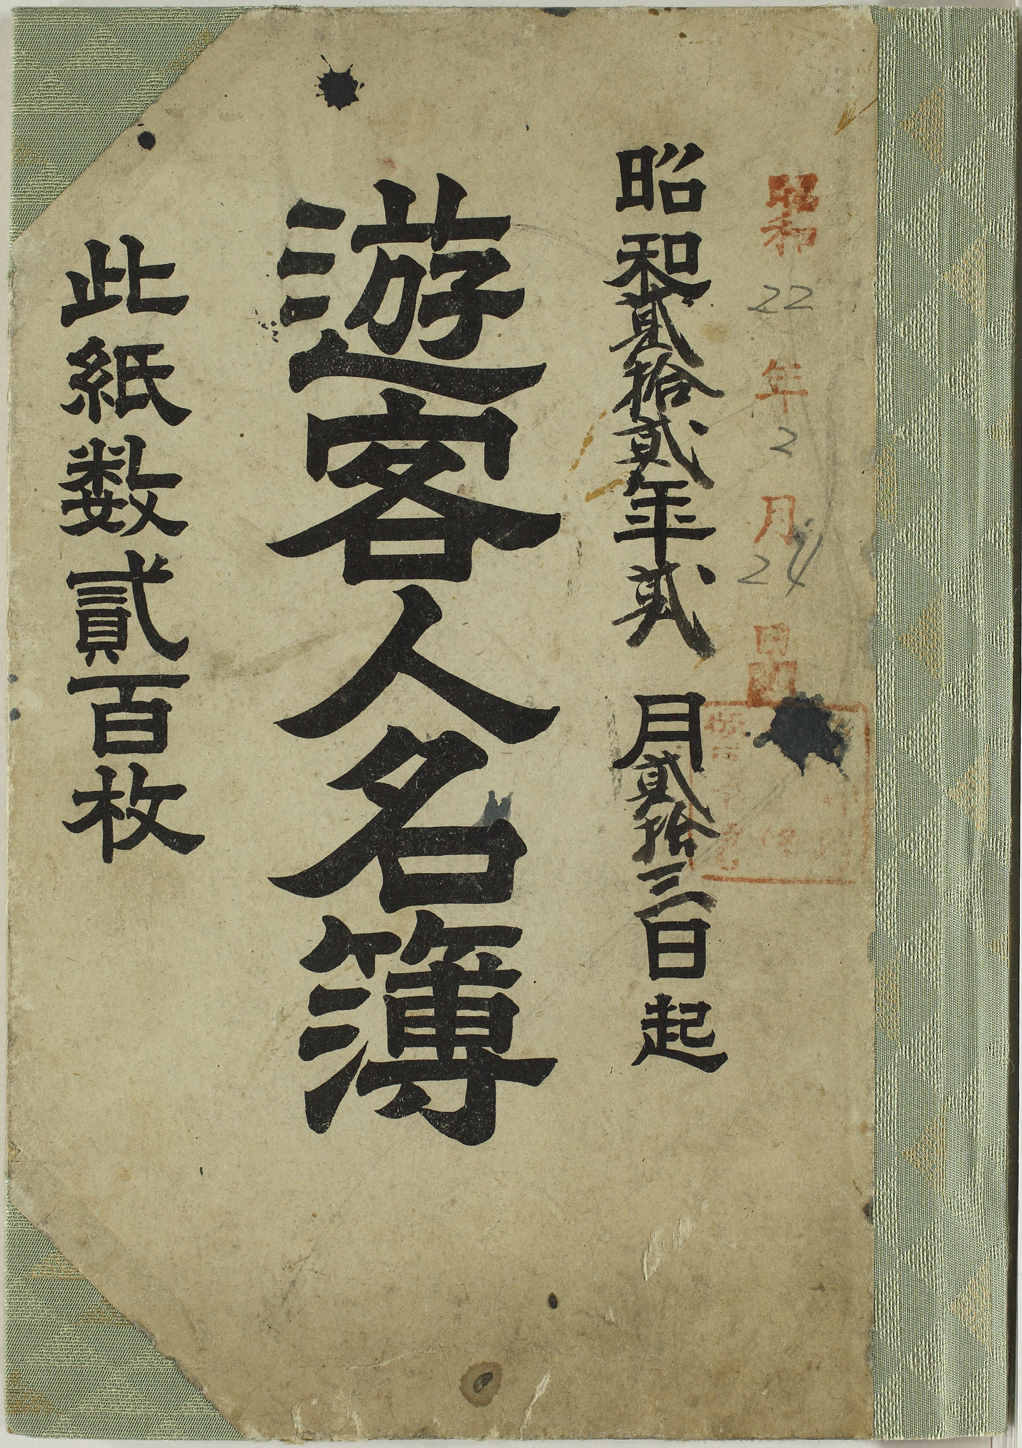 昭和22年2月24日
昭和貳拾貳年貳月貳拾三日起
遊客人名簿
此紙数貳百枚